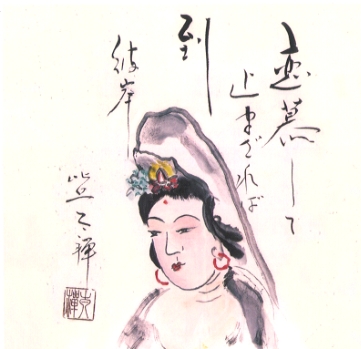 恋慕して
止まざれば
到
彼岸